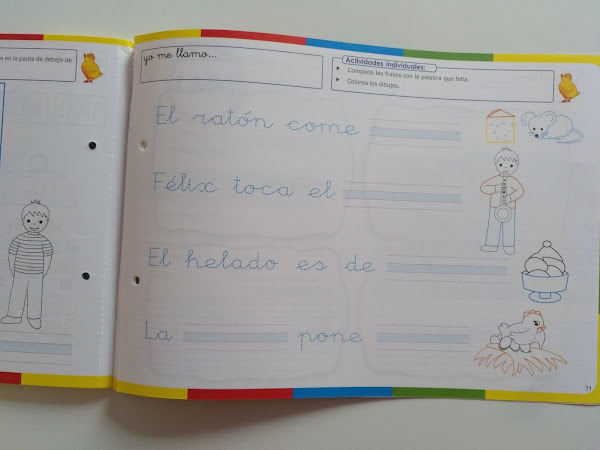 o en la pauta de debejo de
yo me llamo...
Actividades individuales:
Completa las frases con la palabra que falta.
Colorea los dibujos.
El ratón come
Félix toca el
El helado es de
La pone
71